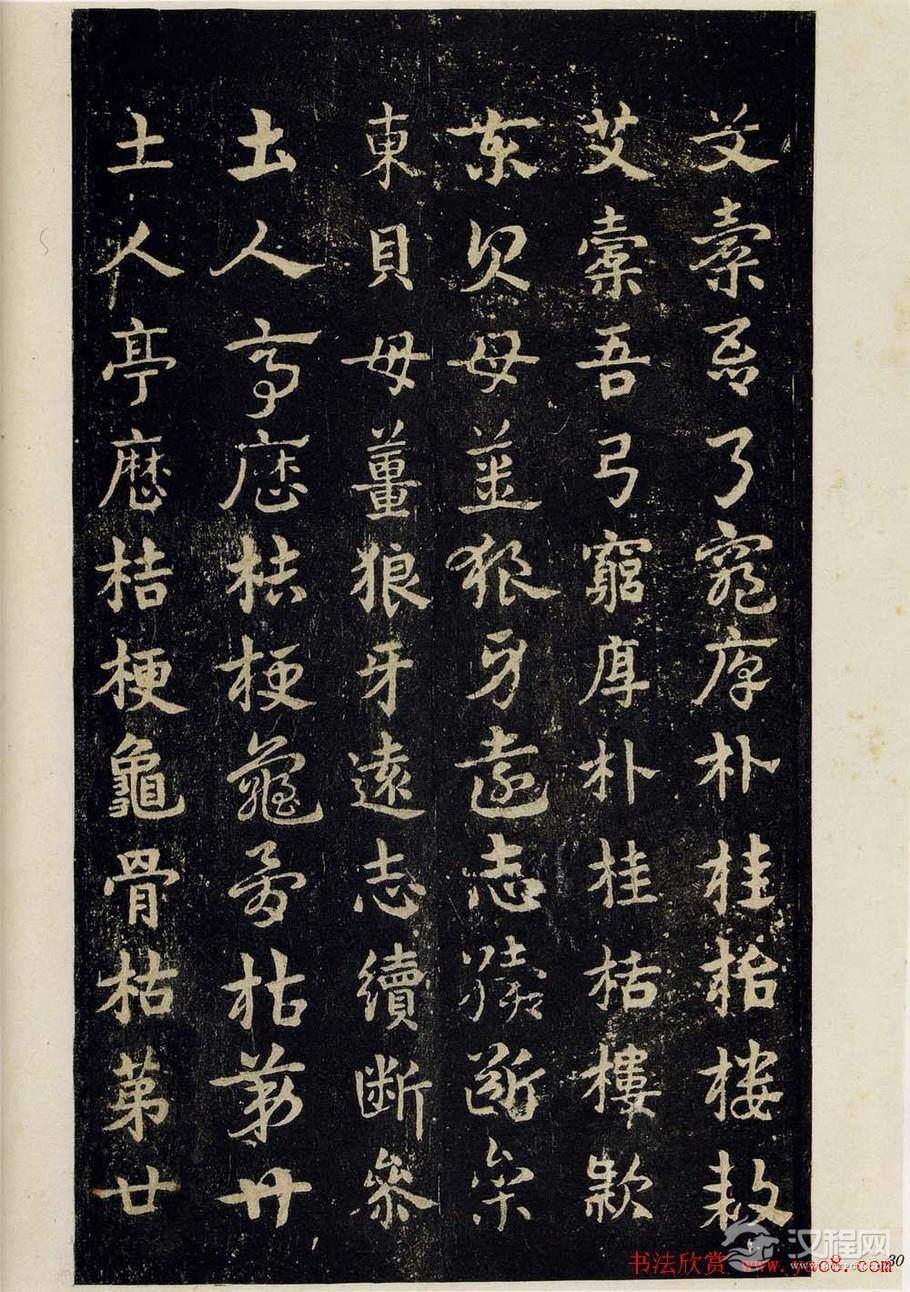 艾橐吾弓窮厚朴桂栝樓款
艾橐吾弓窮厚朴桂栝樓款
東貝母薑狼牙遠志續斷參
東貝母薑狼牙遠志續断參
土人亭歷桔梗龜骨枯第廿
土人亭歷桔梗龜骨枯第廿
汉程网
书法欣赏 www.yac8.com
30